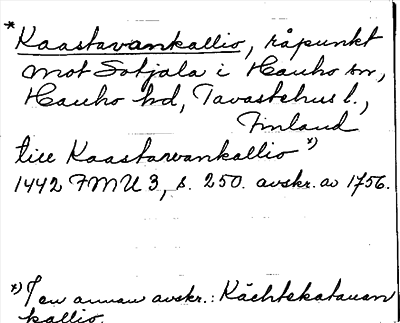 *Kaastavankallio, råpunkt
mot Sotjala i Hauho sn,
Hauho hd, Tavastehus l.,
Finland
till Kaastarvankallio *)
1442 FMU 3, s. 250. avskr. av 1756.
*) I en annan avskr.: Kächtekatauan
kallio.